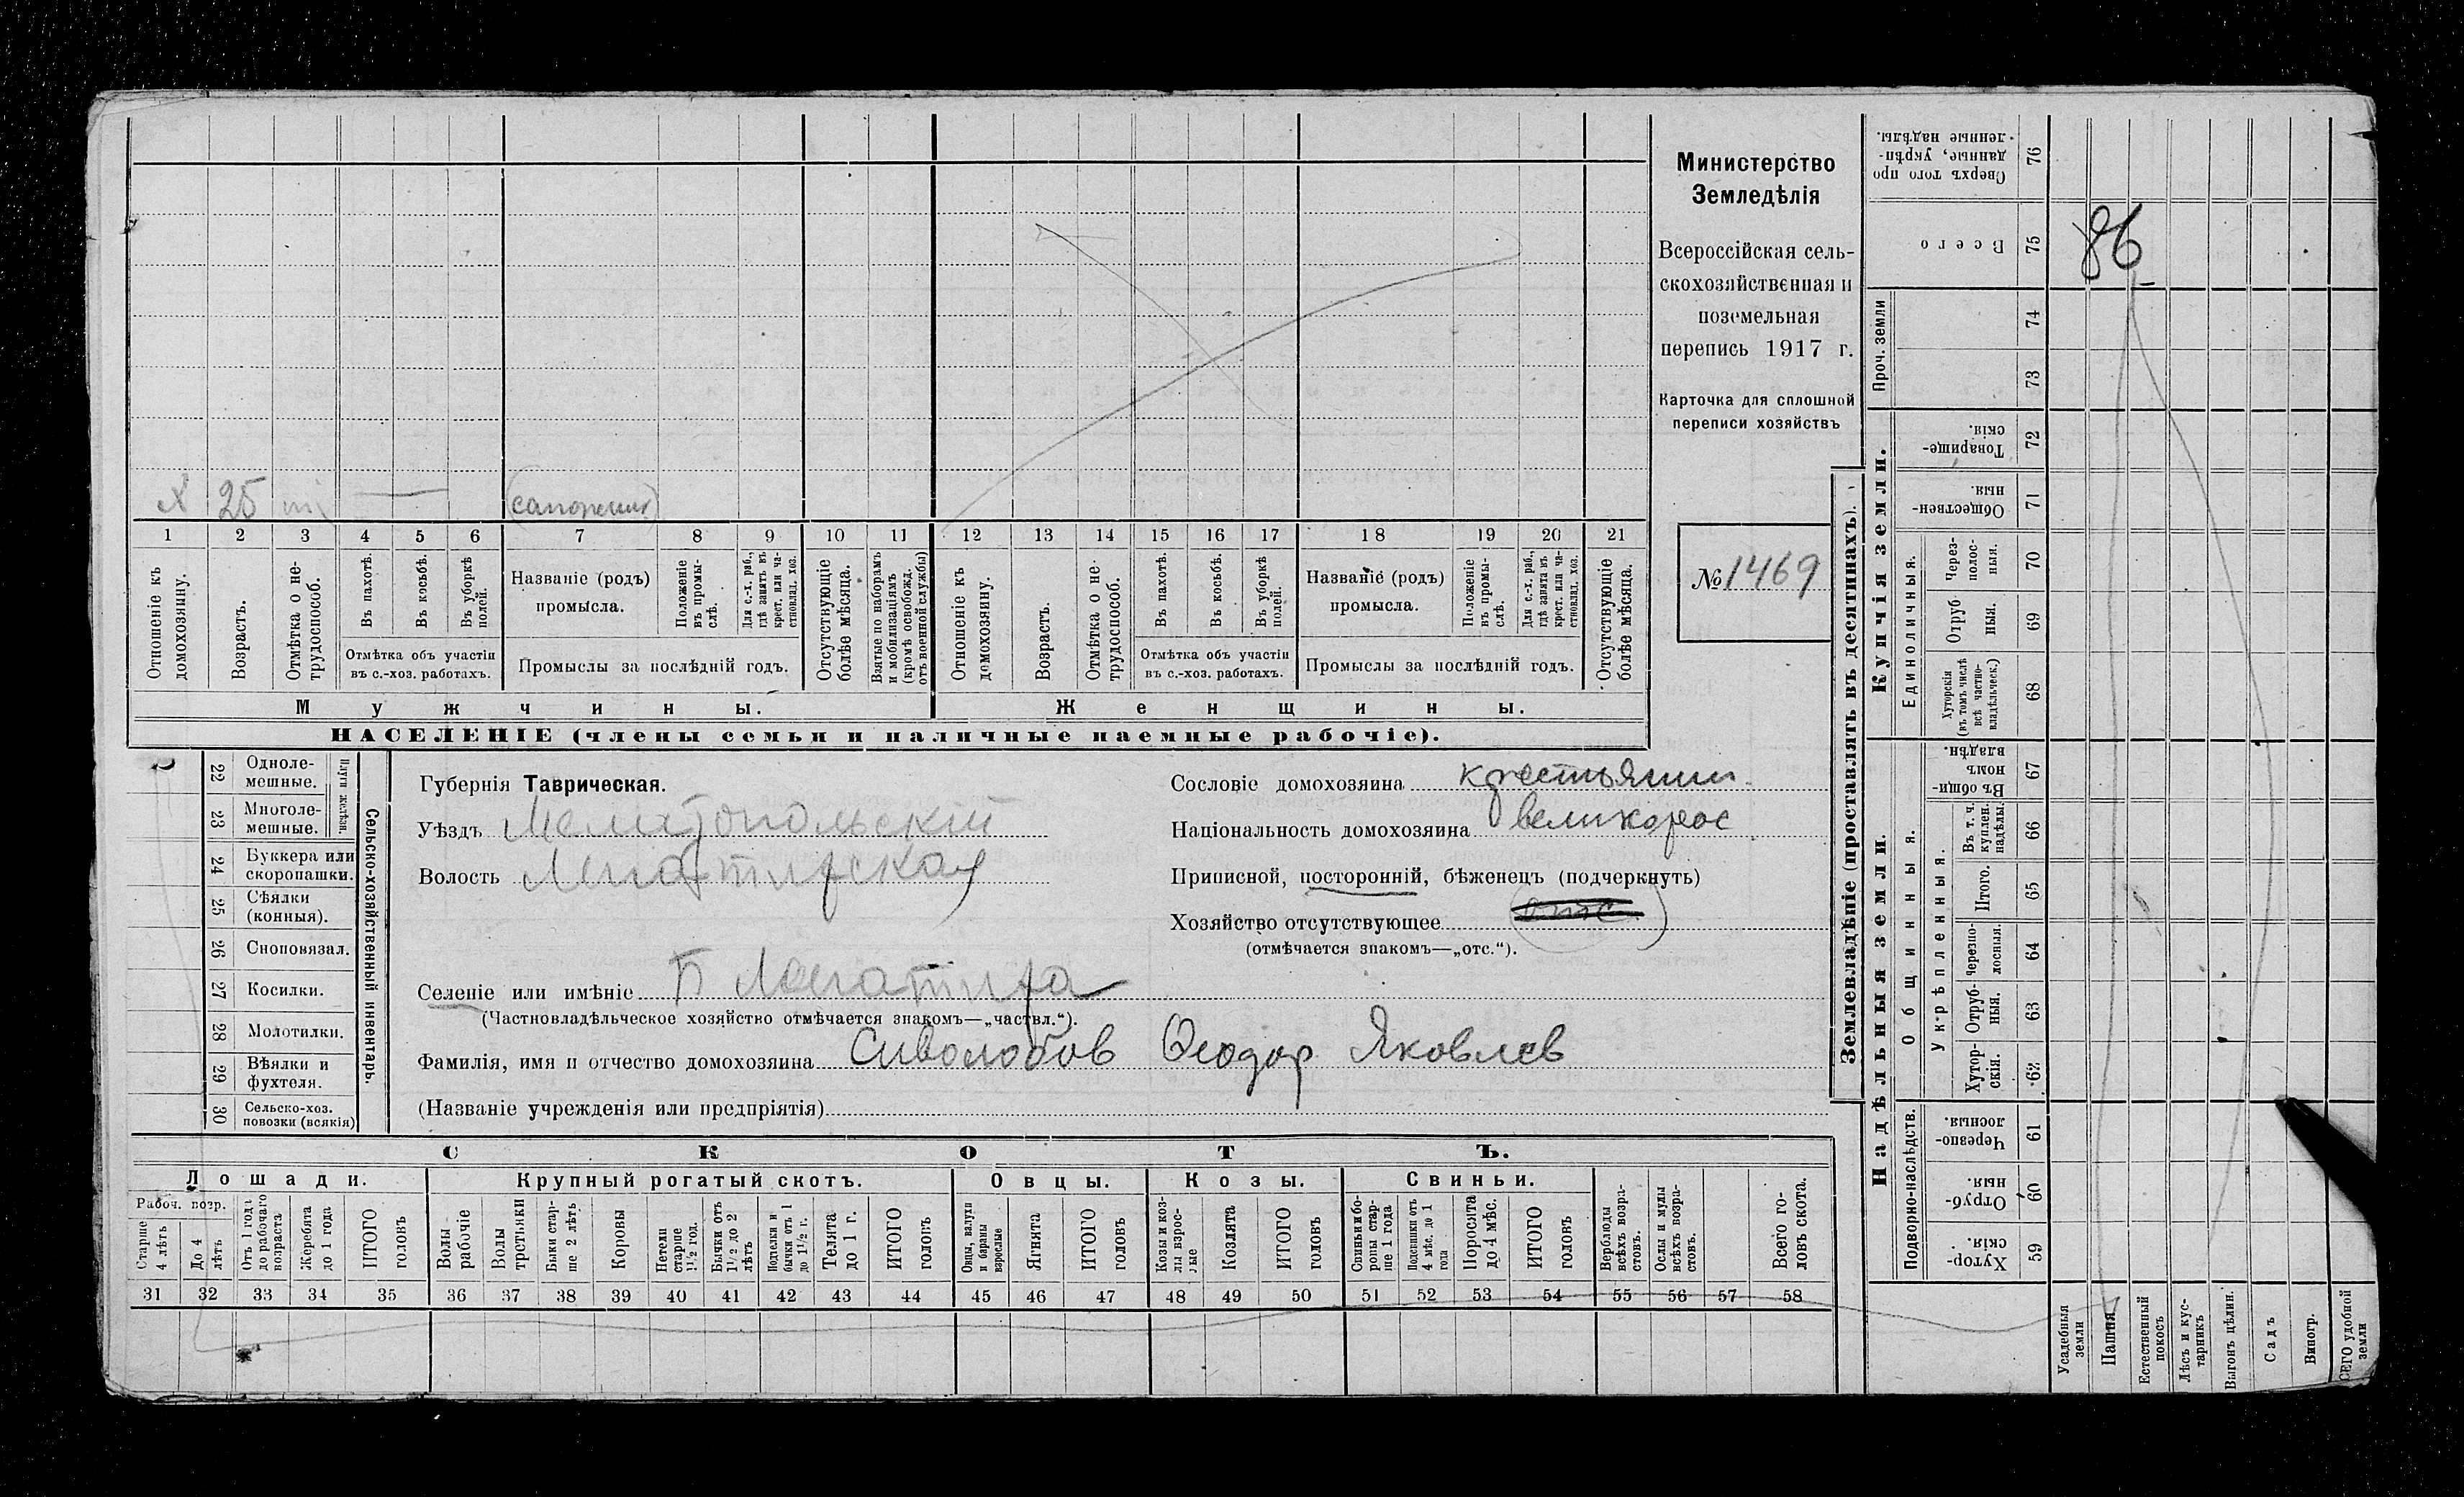 х 25 (сапожник)
1 2 3 4 5 6 7 8 9 10 11 12 13 14 15 16 17 18 19 20 21
Отношеніе къ домохозяину.
Возрастъ.
Отмѣтка о не-
трудоспособ.
Въ пахотѣ.
Въ косьбѣ.
Въ уборкѣ
полей.
Отмѣтка объ участіи
въ с.-хоз. работахъ.
Названіе (родъ)
промысла.
Положеніе
въ промы-
слѣ.
Для с.-х. раб.,
гдѣ занятъ въ
крест. или ча-
стновлад. хоз.
Промыслы за послѣдній годъ.
Отсутствующіе
болѣе мѣсяца.
Взятые по наборамъ
и мобилизаціямъ
(кромѣ освобожд.
отъ военной службы)
Отношеніе къ
домохозяину.
Возрастъ.
Отмѣтка о не-
трудоспособ.
Въ пахотѣ.
Въ косьбѣ.
Въ уборкѣ
полей.
Отмѣтка объ участіи
въ с.-хоз. работахъ.
Названіе (родъ)
промысла.
Положеніе
въ промы-
слѣ.
Для с.-х. раб.,
гдѣ занята въ
крест. или ча-
стновлад. хоз.
Промыслы за послѣдній годъ.
Отсутствующіе
болѣе мѣсяца.
Мужчины.
Женщины.
НАСЕЛЕНІЕ (члены семьи и наличные наемные рабочіе).
Министерство
Земледѣлія
Всероссійская сель-
скохозяйственная и
поземельная
перепись 1917 г.
Карточка для сплошной
переписи хозяйствъ
№ 1469
22 Однолe-
мешные.
23 Многоле-
мешные.
Плуги желѣзн.
24 Буккера или
скоропашки.
25 Сѣялки
(конныя).
26 Сноповязал.
27 Косилки.
28 Молотилки.
29 Вѣялки и
фухтеля.
30 Сельско-хоз.
повозки (всякія)
Сельско-хозяйственный инвентарь.
Губернія Таврическая.
Уѣздъ Мелитопольскій
Волость
Селеніе или имѣніе Б
(Частновладѣльческое хозяйство отмѣчается знакомъ—„частвл.“).
Фамилія, имя и отчество домохозяина Сиволобов Ѳеодор Яковлев
(Названіе учрежденія или предпріятія)
Сословіе домохозяина крестьянин
Національность домохозяина великорос
Приписной, посторонній, бѣженецъ (подчеркнуть)
Хозяйство отсутствующее отс
(отмѣчается знакомъ—„отс.“).
СКОТЪ.
Лошади.
Рабоч. возр.
Старше
4 лѣтъ
До 4
лѣтъ
Отъ 1 года
до рабочаго
возраста
Жеребята
до 1 года
ИТОГО
головъ
Крупный рогатый скотъ.
Волы
рабочіе
Волы
третьяки
Быки стар-
ше 2 лѣтъ
Коровы
Нетели
старше
1½ год.
Бычки отъ
1½ до 2
лѣтъ
Подтелки и
бычки отъ 1
до 1½ г.
Телята
до 1 г.
ИТОГО
головъ
Овцы.
Овцы, валухи
и бараны
взрослые
Ягнята
ИТОГО
головъ
Козы.
Козы и коз-
лы взрос-
лые
Козлята
ИТОГО
головъ
Свиньи.
Свиньи и бо-
ровы стар-
ше 1 года
Подсвинки отъ
4 мѣс. до 1
года
Поросята
до 4 мѣс.
ИТОГО
головъ
Верблюды
всѣхъ возра-
стовъ.
Ослы и мулы
всѣхъ возра-
стовъ.
Всего го-
ловъ скота.
31 32 33 34 35 36 37 38 39 40 41 42 43 44 45 46 47 48 49 50 51 52 53 54 55 56 57 58
Землевладѣніе (проставлять въ десятинахъ).
Сверхъ того про
данные, укрѣп-
ленные надѣлы.
76
Всего
75
86
Проч. земли
74
73
Купчія земли.
Товарище-
скія.
72
Обществен-
ныя.
71
Единоличныя.
Через-
полос-
ныя.
70
Отруб
ныя.
69
Хуторскія
(въ томъ числѣ
всѣ частно-
владѣльческ.)
68
Надѣльныя земли.
Общинныя.
Въ общи-
номъ
владѣн.
67
Укрѣпленныя.
Въ т. ч.
куплен.
надѣлы.
66
Итого.
65
Черезпо-
лосныя.
64
Отруб-
ныя.
63
Хутор-
скія.
62
Подворно-наслѣдств.
Черезпо-
лосныя.
61
Отруб-
ныя.
60
Хутор-
скія.
59
Усадебныя
земли
Пашня
Естественный
покосъ
Лѣсъ и кус-
тарникъ
Выгонъ цѣлин.
Садъ
Виногр.
земли